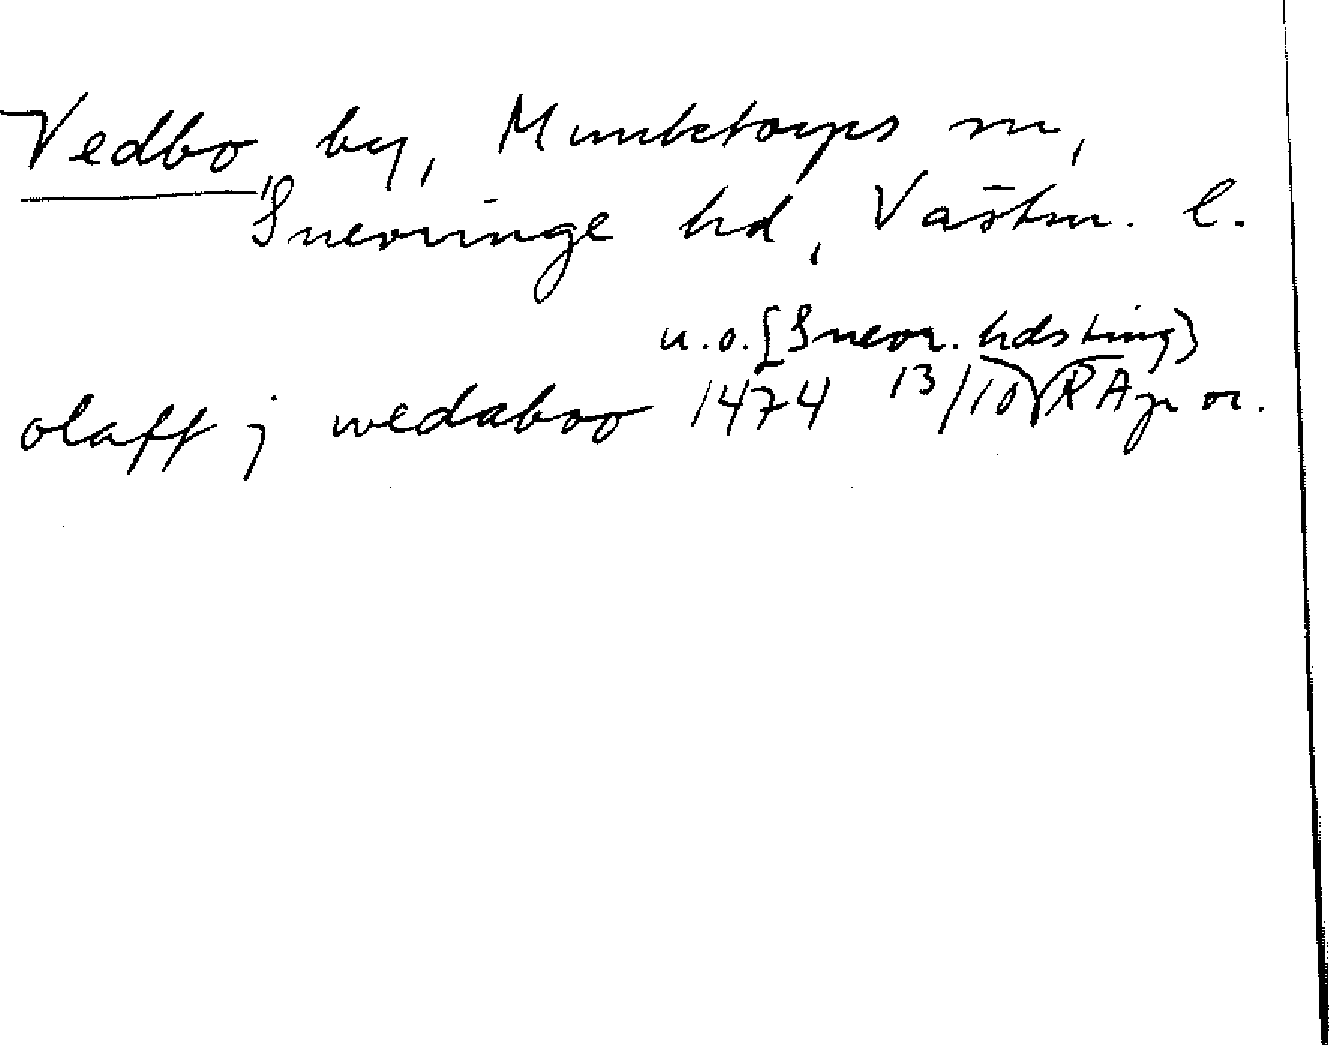 Vedbo, by, Munktorps sn,
Snevringe hd, Västm. l.
u.o. [Snevr. hdsting]
olaff j wedaboo 1474 13/10 RAp or.